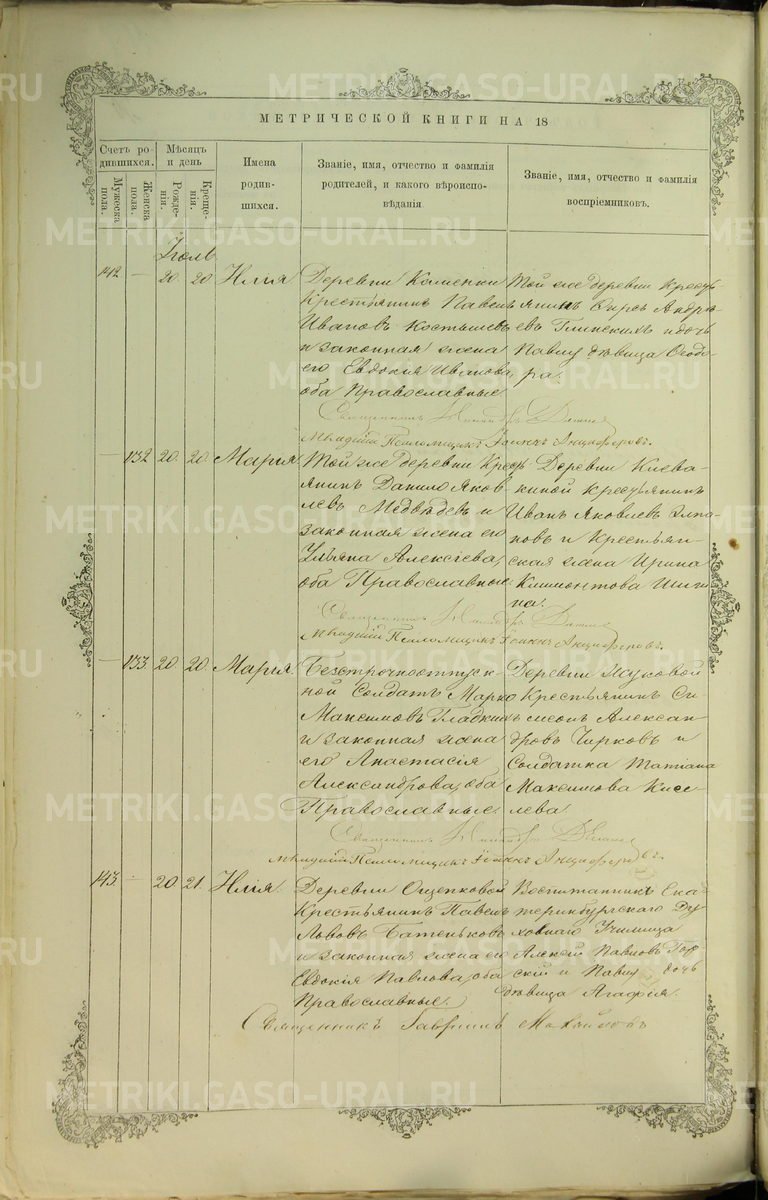 МЕТРИЧЕСКОЙ КНИГИ НА 18
Счетъ ро-
дившихся.
Мѣсяцъ
и день
Мужеска
пола.
Женска
пола.
Рожде-
нія.
Креще-
нія.
Имена
родив-
шихся.
Званіе, имя, отчество и фамилія
родителей, и какого вѣроиспо-
вѣданія
Званіе, имя, отчество и фамилія
воспріемниковъ.
Іюль
142 — 20. 20 Илія
Деревни Каменки
Крестьянинъ Павелъ
Ивановъ Костылевъ
и законная жена
его Евдокія Иванова,
оба Православные
Той же деревни Кресть-
янинъ Андре-
евъ Глинскихъ и дочь
Павлу дѣвица Ѳеодо-
ра.
Священникъ
Младшій Псаломщикъ Іоаннъ Анциферовъ.
— 132 20. 20. Марія.
Той же деревни Кресть-
янинъ Данило Яков-
левъ Медвѣдевъ и
законная жена его
Ульяна Алексіева,
оба Православные.
Деревни
Крестьянинъ
Иванъ Яковлевъ
и Крестьян-
ская жена Ирина
на.
Священникъ
Младшій Псаломщикъ Іоаннъ Анциферовъ.
— 133 20 20. Марія.
Безсрочноотпуск-
ной Солдатъ Марко
Максимовъ Гладкихъ
и законная жена
его Анастасія
Александрова, оба
Православные.
Деревни
Крестьянинъ Си-
меонъ Александ-
ровъ Чирковъ и
Солдатка Татіана
Максимова Кисе-
лева.
Священникъ
Младшій Псаломщикъ Іоаннъ Анциферовъ.
143. — 20 21. Илія.
Деревни Ощепковой
Крестьянинъ Павелъ
Львовъ Батеньковъ
и законная жена его
Евдокія Павлова, оба
Православные.
Воспитанникъ Ека-
теринбургскаго Ду-
ховнаго Училища
Алексѣй Павловъ
скій и Павлу дочь
дѣвица Агафія.
Священникъ Гавріилъ
METRIKI.GASO-URAL.RU